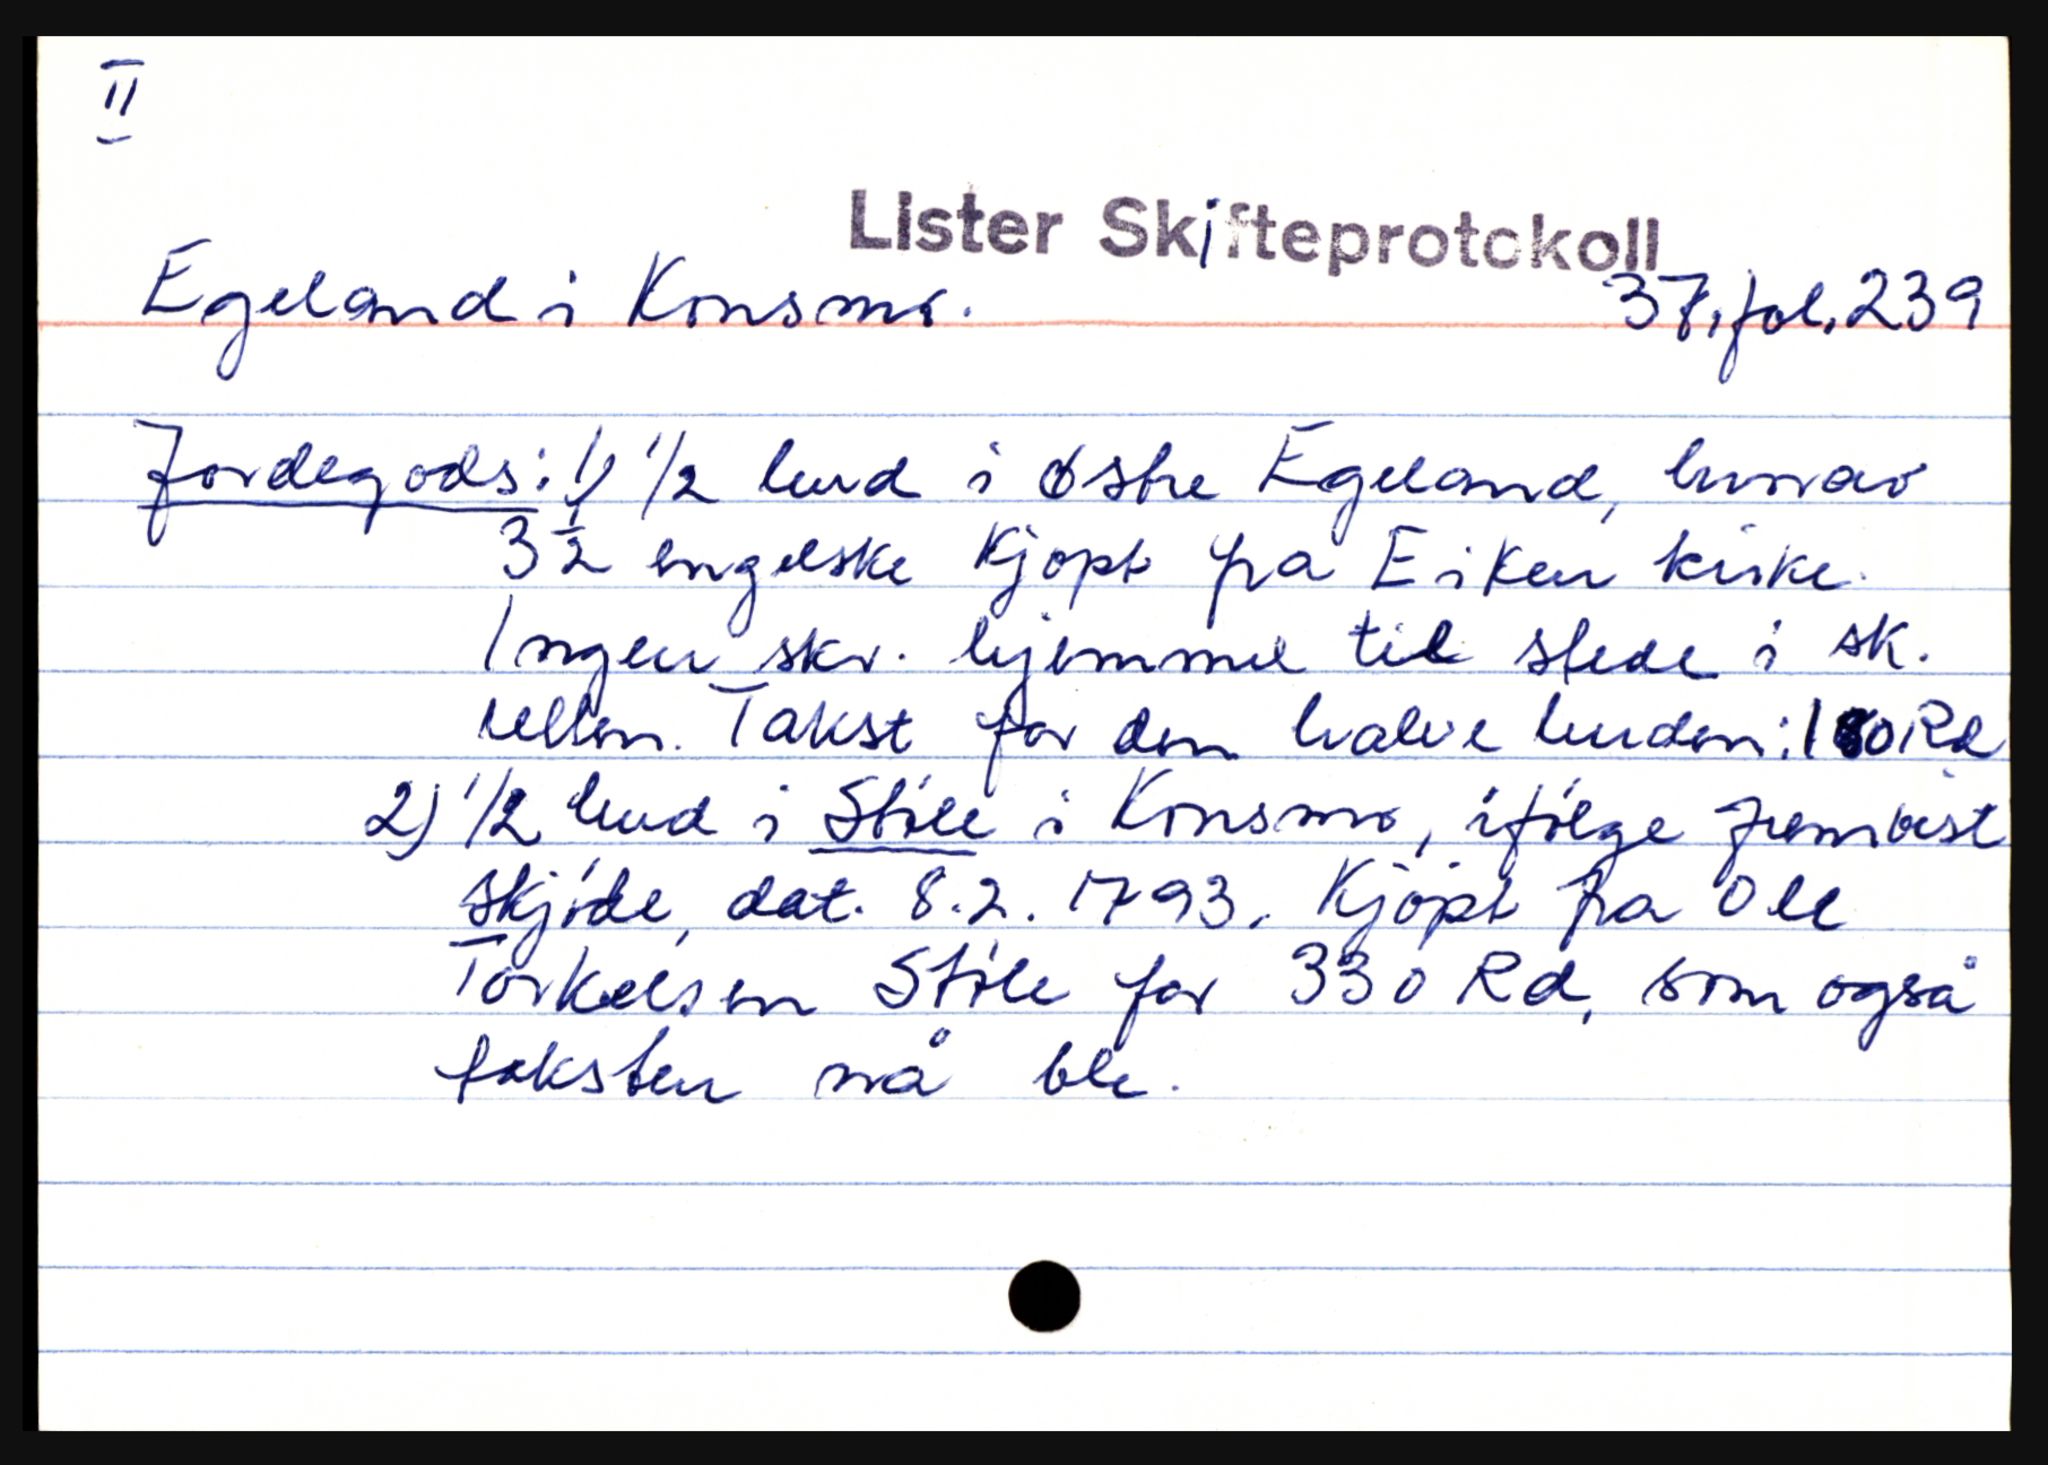 II
Lister Skifteprotokoll
Egeland i Konsmo. 37, fol. 239
Jordegods: 1) 1/2 hud i østre Egeland, hvorav
3 1/2 engelske kjøpt fra Eiken kirke.
Ingen skr. hjemmel til stede i sk.
retten. Takst for den halve huden: Rd
2) 1/2 hud i Støle i Konsmo, ifølge fremvist
skjøde, dat. 8.2.1793. Kjøpt fra Ole
Torkelsen Støle for 330 Rd, som også
taksten nå ble.